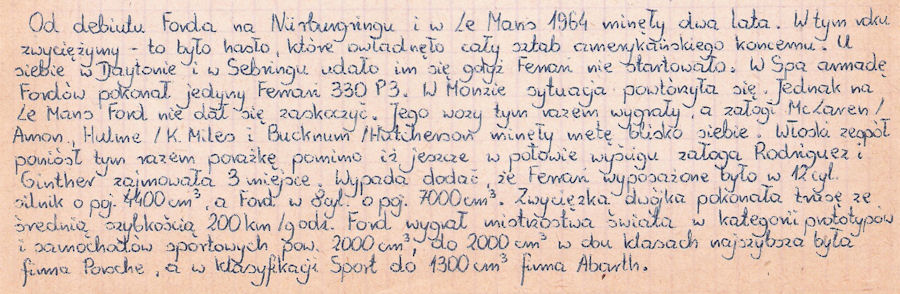 Od debiutu Forda na Nürburgringu i w Le Mans 1964 minęły dwa lata. W tym roku
zwyciężymy - to było hasło, które owładnęło cały sztab amerykańskiego koncernu. U
siebie w Daytonie i w Sebringu udało im się gdyż Ferrari nie startowało. W Spa armadę
Fordów pokonał jedyny Ferrari 330 P3. W Monzie sytuacja powtórzyła się. Jednak na
Le Mans Ford nie dał się zaskoczyć. Jego wozy tym razem wygrały, a załogi McLaren/
Amon, Hulme/K. Miles i Bucknum/Hutcherson minęły metę blisko siebie. Włoski zespół
poniósł tym razem porażkę pomimo iż jeszcze w połowie wyścigu załoga Rodriguez i
Ginther zajmowała 3 miejsce. Wypada dodać, że Ferrari wyposażone było w 12 cyl.
silnik o poj. 4400 cm³, a Ford w 8 cyl. o poj. 7000 cm³. Zwycięzka dwójka pokonała trasę ze
średnią szybkością 200 km/godz. Ford wygrał mistrzostwa świata w kategorii prototypów
i samochodów sportowych pow. 2000 cm³, do 2000 cm³ w obu klasach najszybsza była
firma Porsche, a w klasyfikacji Sport do 1300 cm³ firma Abarth.